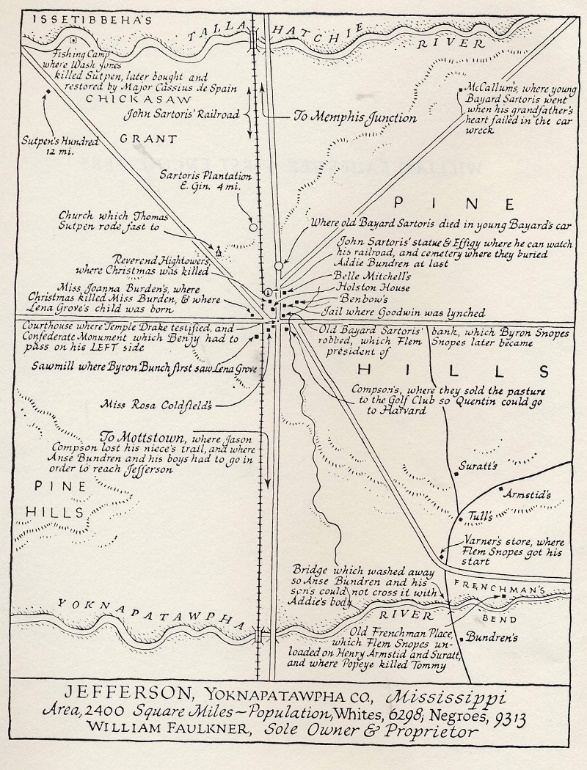 ISSETIBBEHA'S
TALLA HATCHIE
RIVER
Fishing Camp
where Wash Jones
killed Sutpen, later bought and
restored by Major Cassius de Spain
CHICKASAW
GRANT
John Sartoris' Railroad
To Memphis Junction
McCallum's, where young
Bayard Sartoris went
when his grandfather's
heart failed in the car
wreck
Sutpen's Hundred
12 mi.
Sartoris Plantation
E. Gin. 4 mi.
PINE
Church which Thomas
Sutpen rode fast to
Where old Bayard Sartoris died in young Bayard's car
John Sartoris' statue & Effigy where he can watch
his railroad, and cemetery where they buried
Addie Bundren at last
Reverend Hightower's,
where Christmas was killed
Belle Mitchell's
Holston House
Benbow's
Jail where Goodwin was lynched
Miss Joanna Burden's, where
Christmas killed Miss Burden, & where
Lena Grove's child was born
Courthouse where Temple Drake testified, and
Confederate Monument which Benjy had to
pass on his LEFT side
Old Bayard Sartoris' bank, which Byron Snopes
robbed, which Flem Snopes later became
president of
HILLS
Sawmill where Byron Bunch first saw Lena Grove
Compson's, where they sold the pasture
to the Golf Club so Quentin could go
to Harvard
Miss Rosa Coldfield's
To Mottstown, where Jason
Compson lost his niece's trail, and where
Anse Bundren and his boys had to go in
order to reach Jefferson
PINE
HILLS
Suratt's
Armstid's
Tull's
Varner's store, where
Flem Snopes got his
start
Bridge which washed away
so Anse Bundren and his
sons could not cross it with
Addie's body
FRENCHMAN'S
BEND
YOKNAPATAWPHA
RIVER
Old Frenchman Place,
which Flem Snopes un-
loaded on Henry Armstid and Suratt,
and where Popeye killed Tommy
Bundren's
JEFFERSON, YOKNAPATAWPHA CO., Mississippi
Area, 2400 Square Miles—Population, Whites, 6298; Negroes, 9313
WILLIAM FAULKNER, Sole Owner & Proprietor